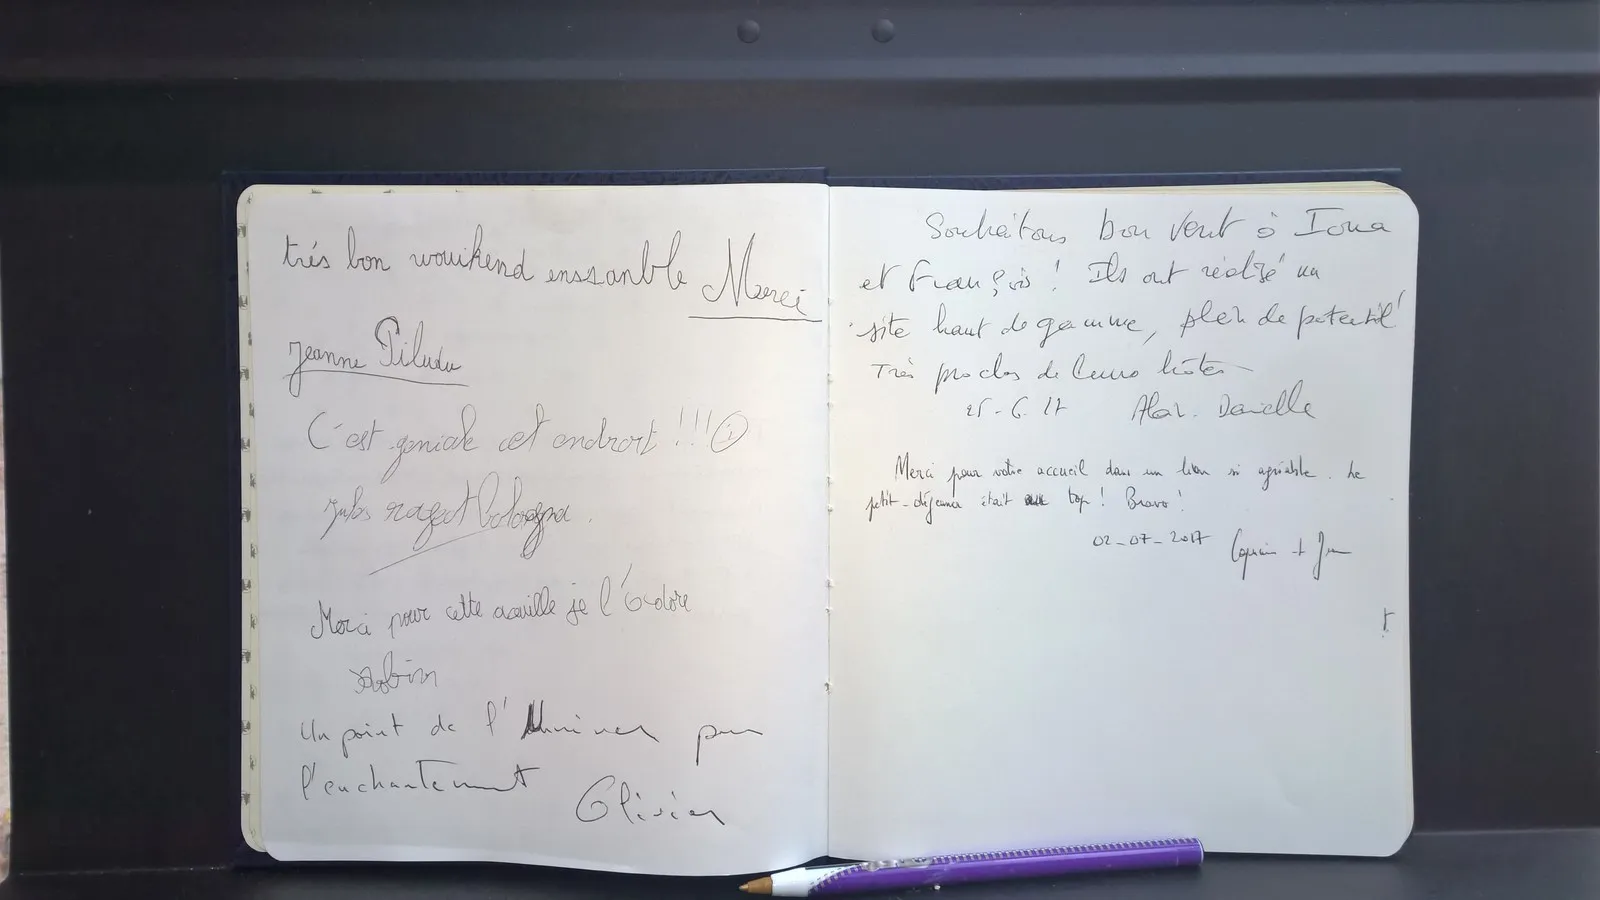 très bon wouikend enssanble Merci
Jeanne Piludu
C'est geniale cet androit !!!
Jules ragect bologna.
Merci pour cette acuille je l'adore
Robin
Un point de l'Univers pur
l'enchantement Olivier
Souhaitons bon vent à Iona
et François ! Ils ont réalisé un
site haut de gamme, plein de potentiel
Très proches de leurs hôtes
25-6.17 Alain. Danielle
Merci pour votre accueil dans un lieu si agréable. Le
petit-déjeuner était top ! Bravo !
02-07-2017